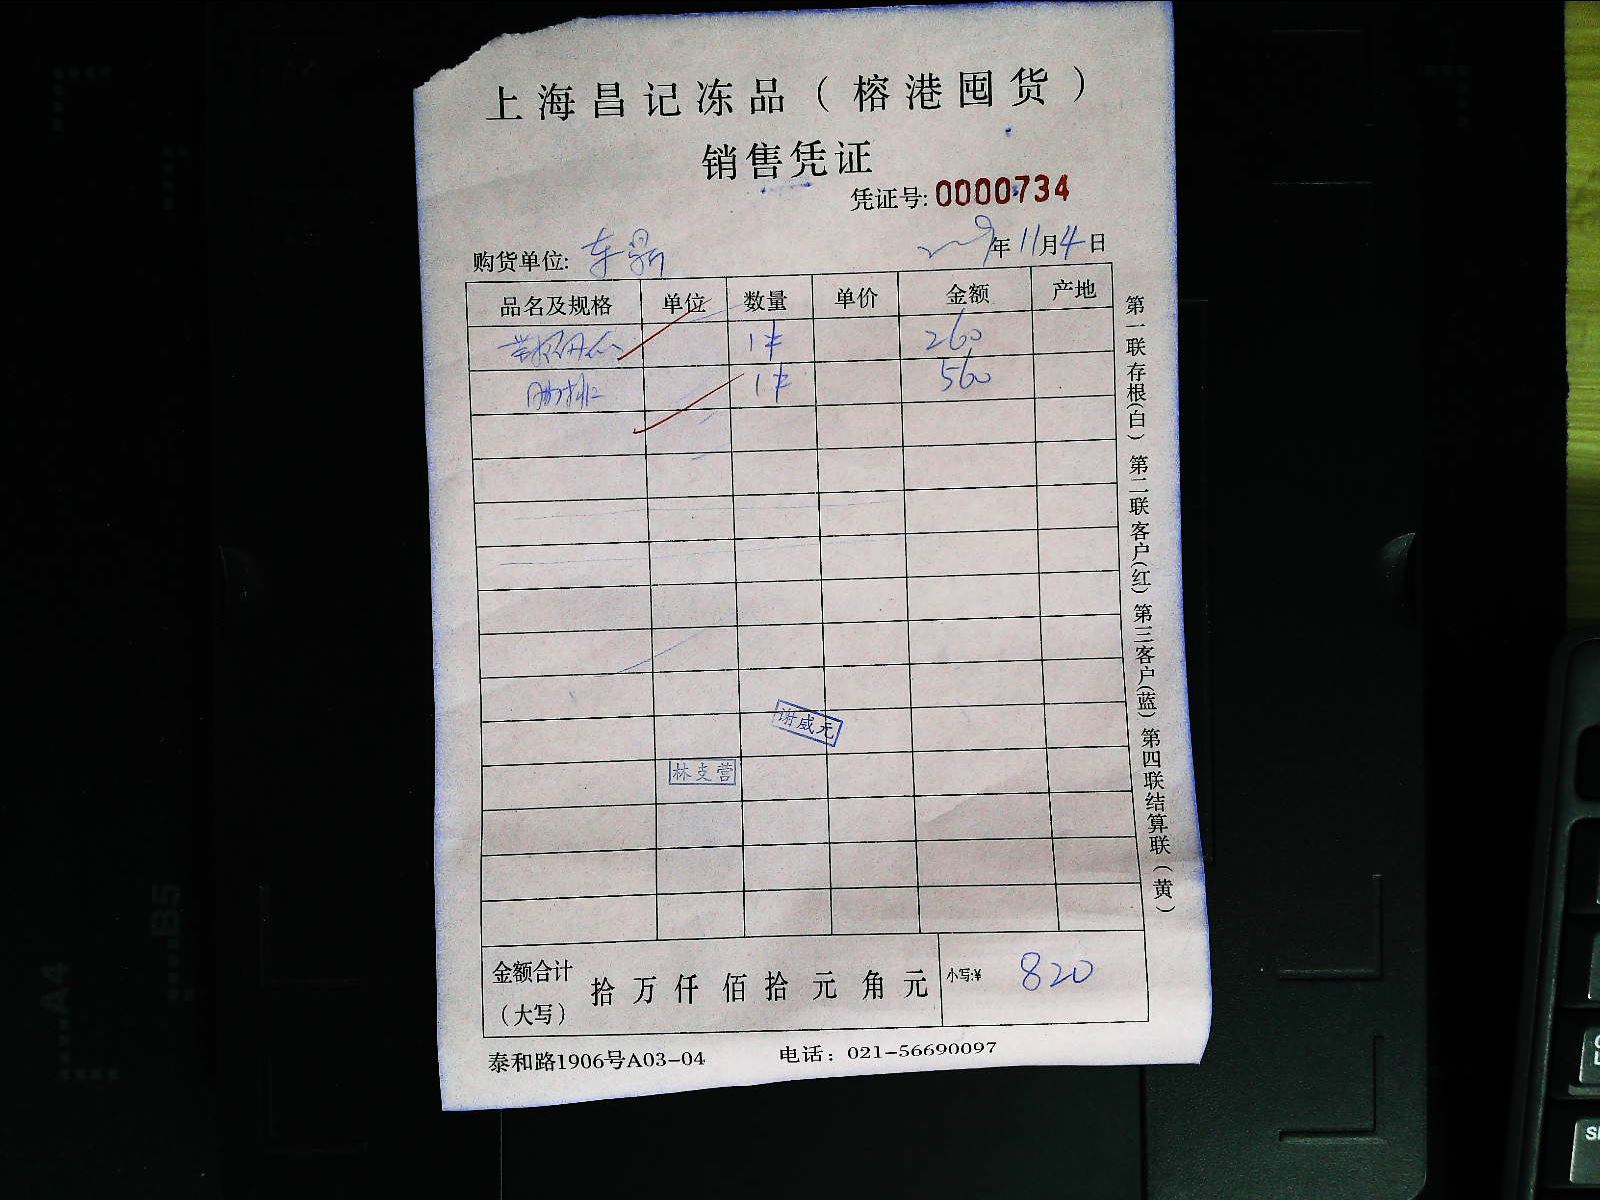 上海昌记冻品（榕港囤货）
销售凭证
凭证号: 0000734
购货单位: 东 年11月4日
品名及规格 单位 数量 单价 金额 产地
1件 260
肋排 1件 560
谢威元
林支营
金额合计（大写） 拾 万 仟 佰 拾 元 角 元 小写:¥ 820
泰和路1906号A03-04 电话：021-56690097
第一联存根（白） 第二联客户（红） 第三客户（蓝） 第四联结算联（黄）
B5
A4